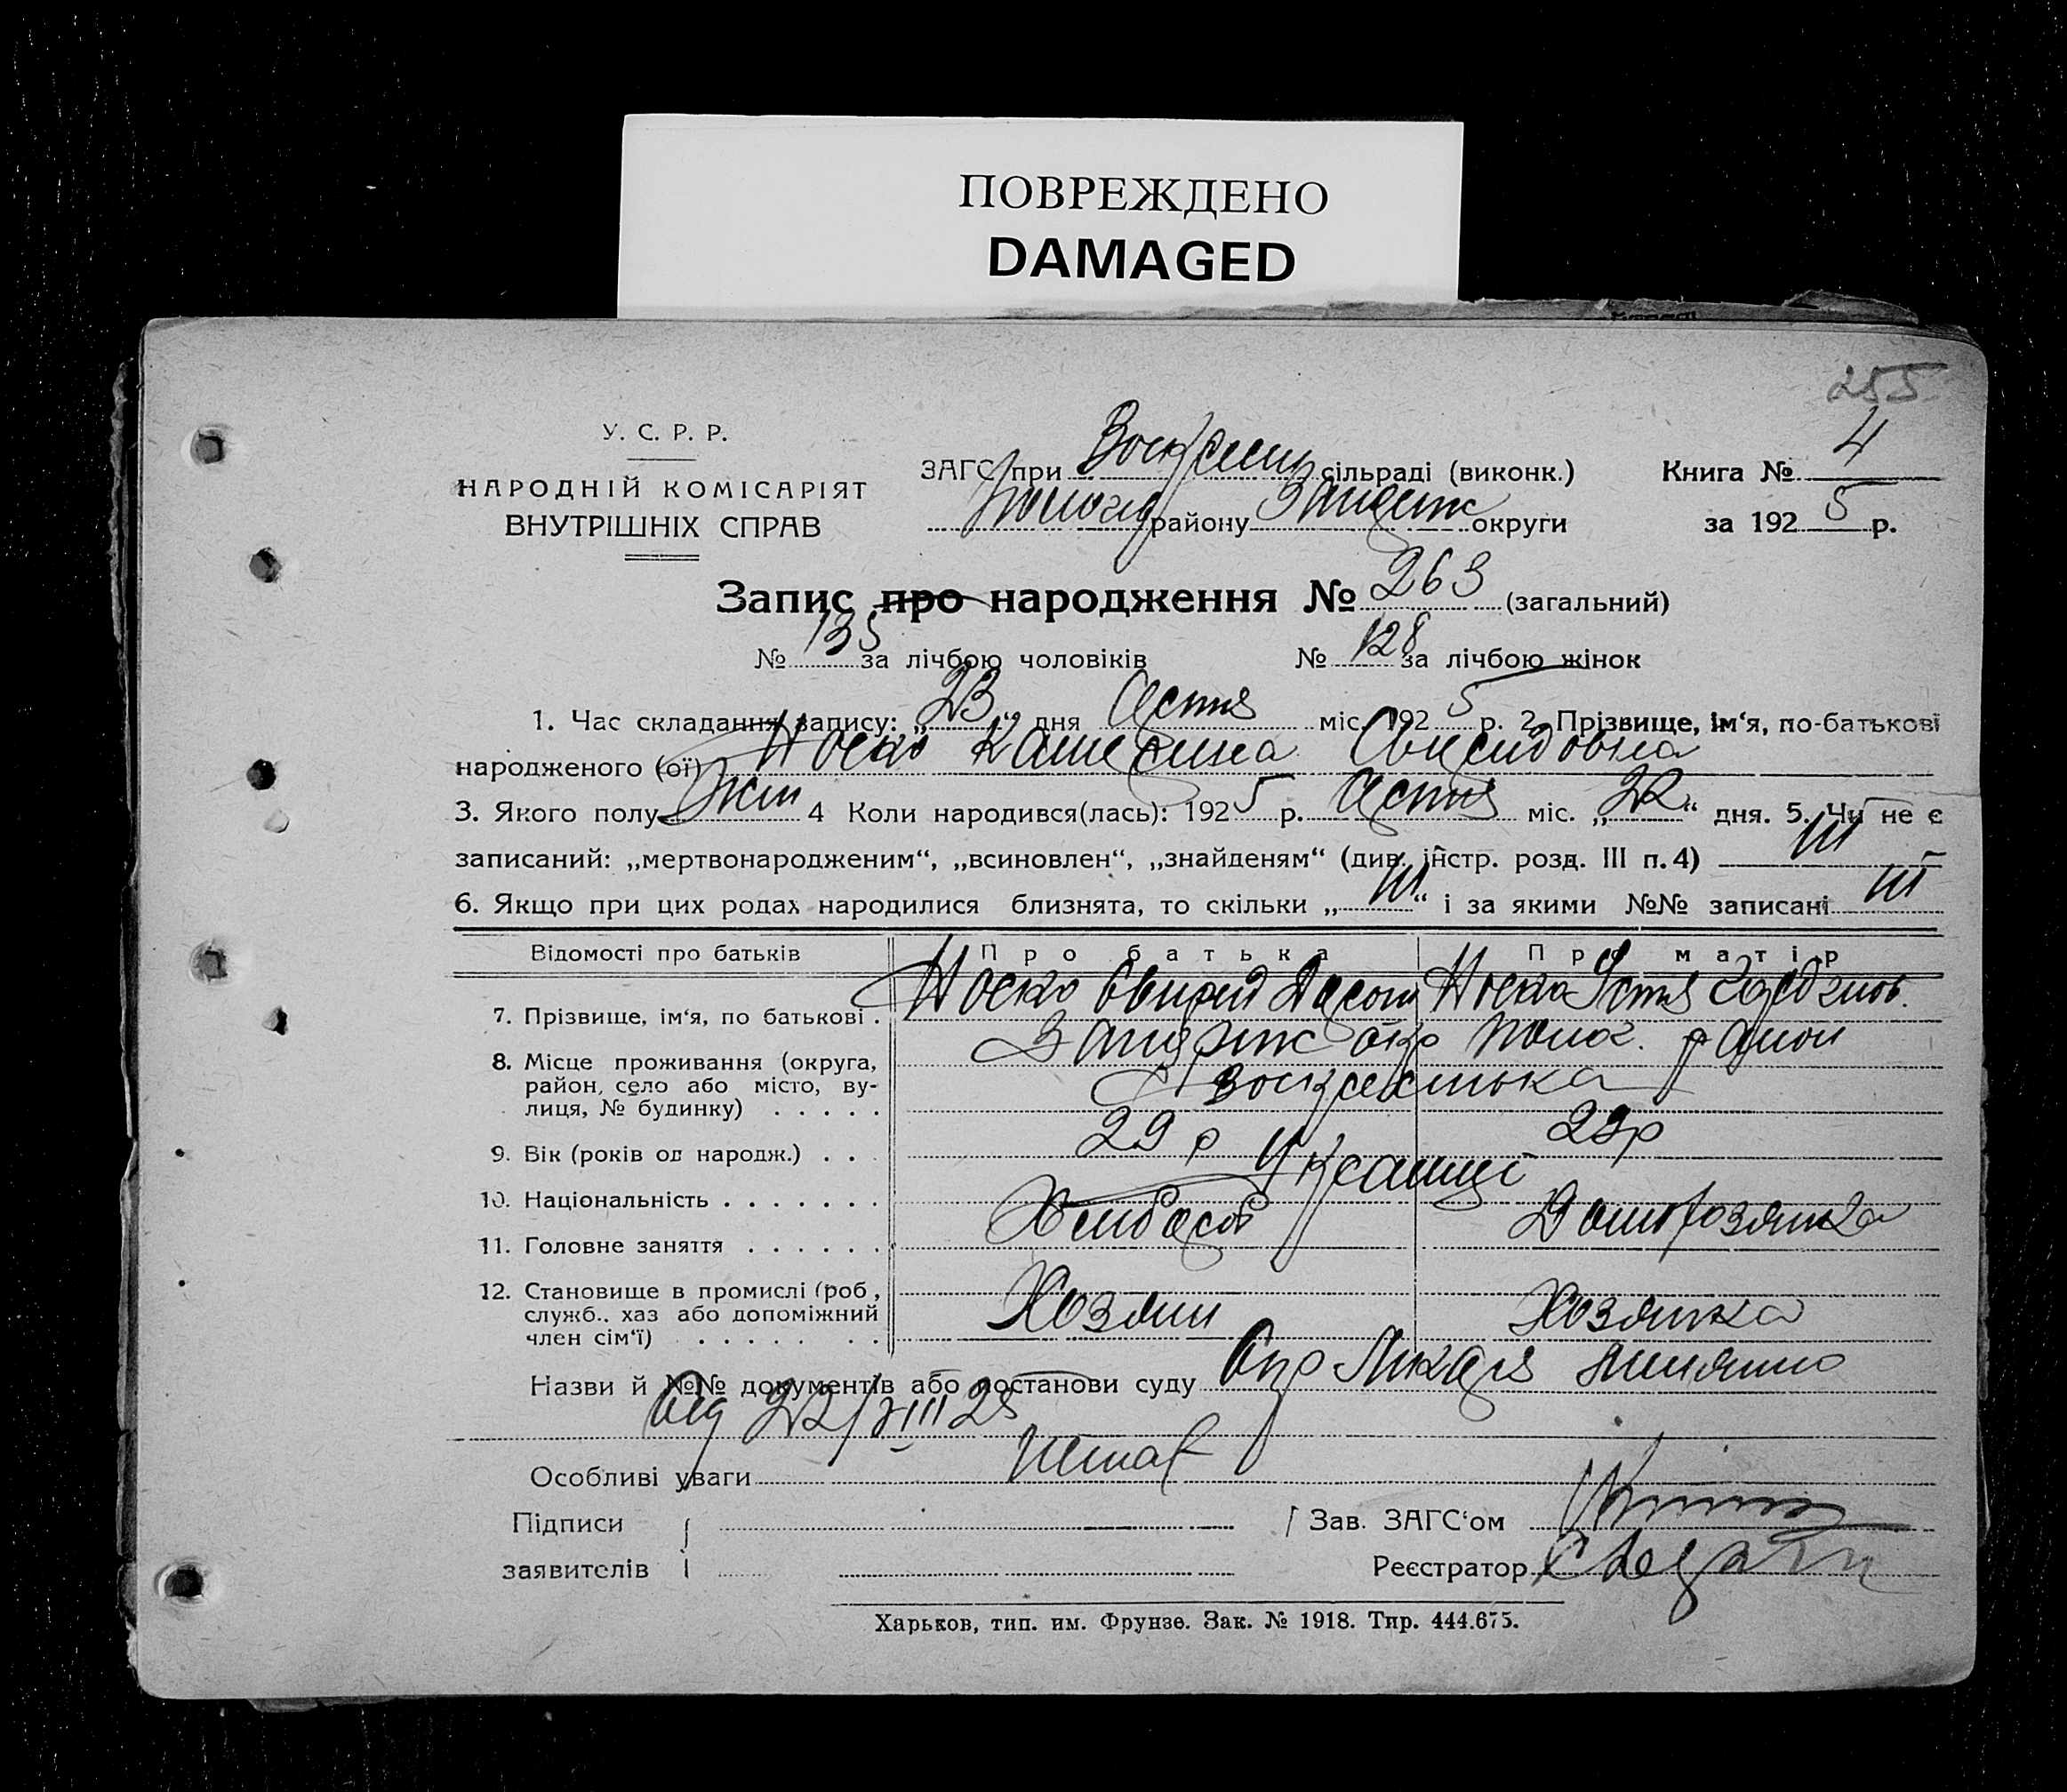 ПОВРЕЖДЕНО
DAMAGED
255
У. С. Р. Р.
НАРОДНІЙ КОМІСАРІЯТ
ВНУТРІШНІХ СПРАВ
ЗАГС при Воскресен сільраді (виконк.) Книга № 4
Полог району Запоріж округи за 1925 р.
Запис про народження № 263 (загальний)
№ 135 за лічбою чоловіків № 128 за лічбою жінок
1. Час складання запису: „23“ дня міс. 1925 р. 2. Прізвище, ім‘я, по-батькові
народженого (ої) Носко Катерина Свиридовна
3. Якого полу жін 4 Коли народився(лась): 1925 р. міс. „22“ дня. 5. Чи не є
записаний: „мертвонародженим“, „всиновлен“, „знайденям“ (див. інстр. розд. III п. 4)
6. Якщо при цих родах народилися близнята, то скільки „ “ і за якими №№ записані
Відомості про батьків Про батька Про матір
7. Прізвище, ім‘я, по батькові . Носко Свирид Носко
8. Місце проживання (округа, район, село або місто, ву-
лиця, № будинку) . . . . . Запоріж окр Полог. район
Воскресенька
9. Вік (років од народж.) . . . 29 р 29р
10. Національність . . . . . . . Українці
11. Головне заняття . . . . . . Хлібороб Домохозяйка
12. Становище в промислі (роб,
служб.. хаз або допоміжний
член сім‘ї) . . . . . . . Хозяин Хозяйка
Назви й №№ документів або постанови суду Лікаря
Від 22/VIII 25
Особливі уваги Немає
Підписи Зав. ЗАГС‘ом
заявителів Реєстратор
Харьков, тип. им. Фрунзе. Зак. № 1918. Тир. 444.675.